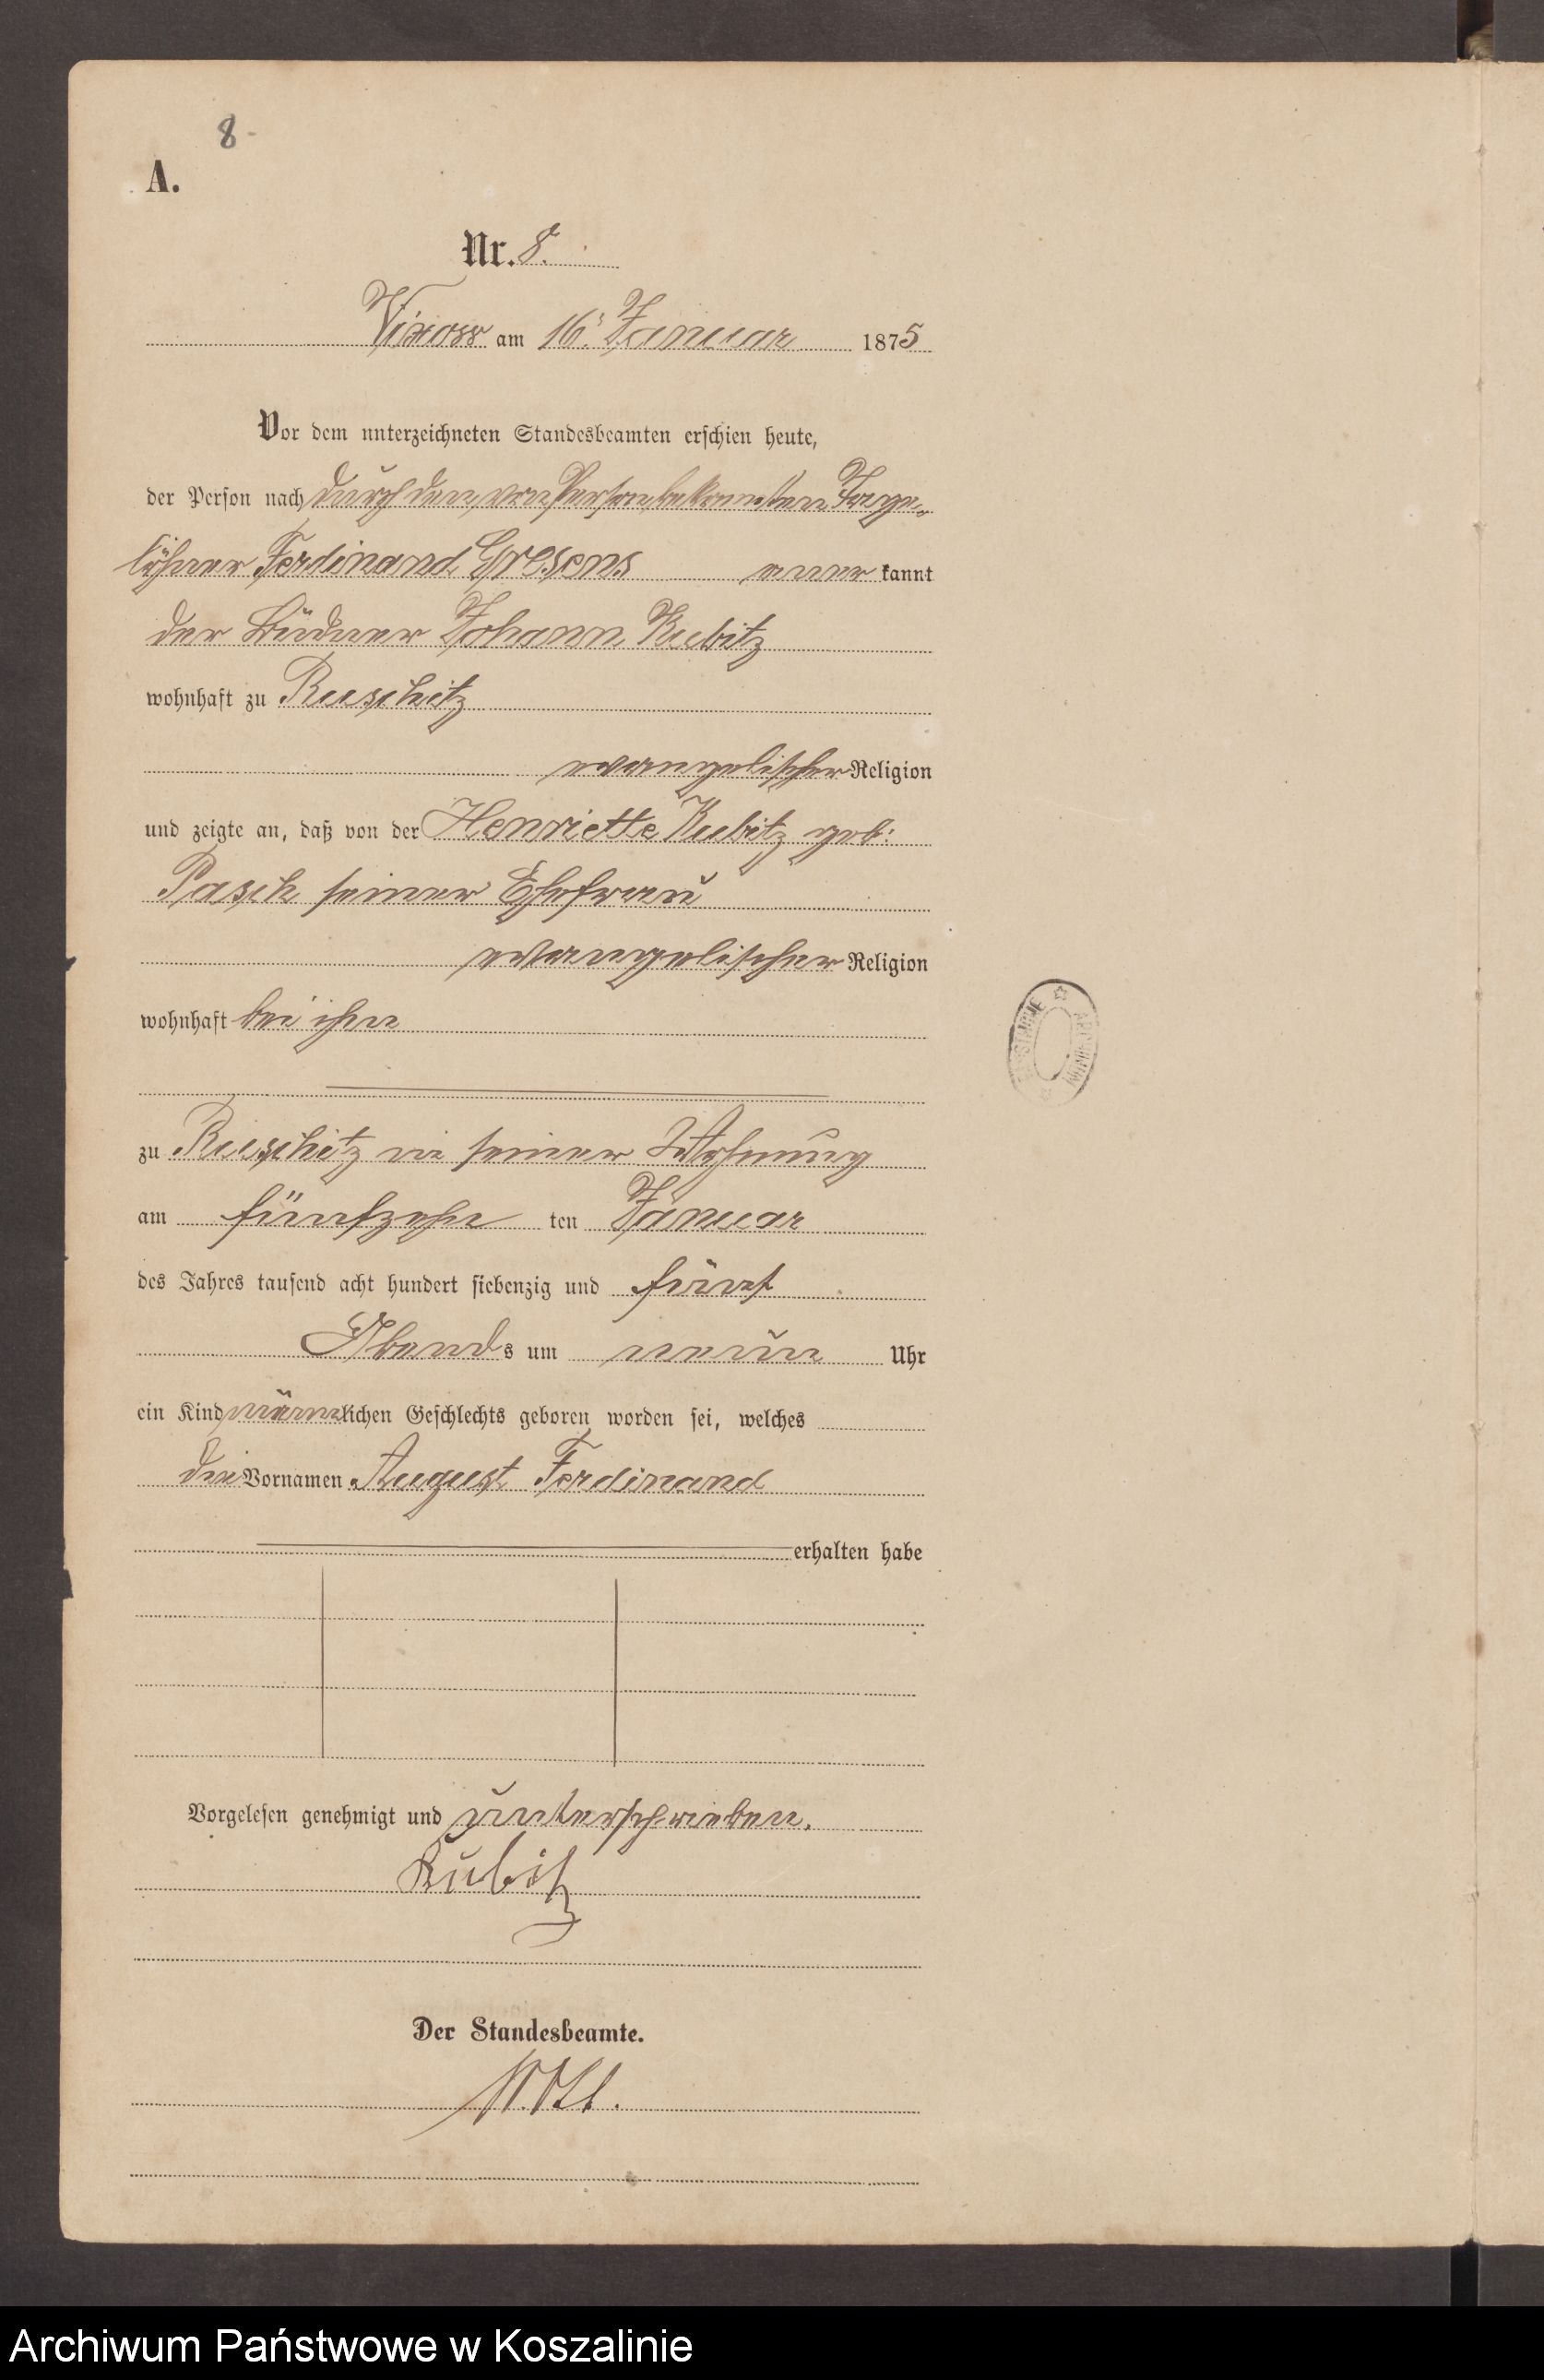 8
A.
Nr. 8.
Vixow am 16. Januar 1875
Vor dem unterzeichneten Standesbeamten erschien heute,
der Person nach durch den von Person bekannten Tage-
löhner Ferdinand Gresens anerkannt
der Büdner Johann Kubitz
wohnhaft zu Ruschitz
evangelischer Religion
und zeigte an, daß von der Henriette Kubitz geb:
Pasch seiner Ehefrau
evangelischer Religion
wohnhaft bei ihm
zu Ruschitz in seiner Wohnung
am fünfzehn ten Januar
des Jahres tausend acht hundert siebenzig und fünf
Abends um neun Uhr
ein Kind männlichen Geschlechts geboren worden sei, welches
die Vornamen August Ferdinand
erhalten habe
Vorgelesen genehmigt und unterschrieben.
Kubitz
Der Standesbeamte.
ARCHIWUM
Archiwum Państwowe w Koszalinie